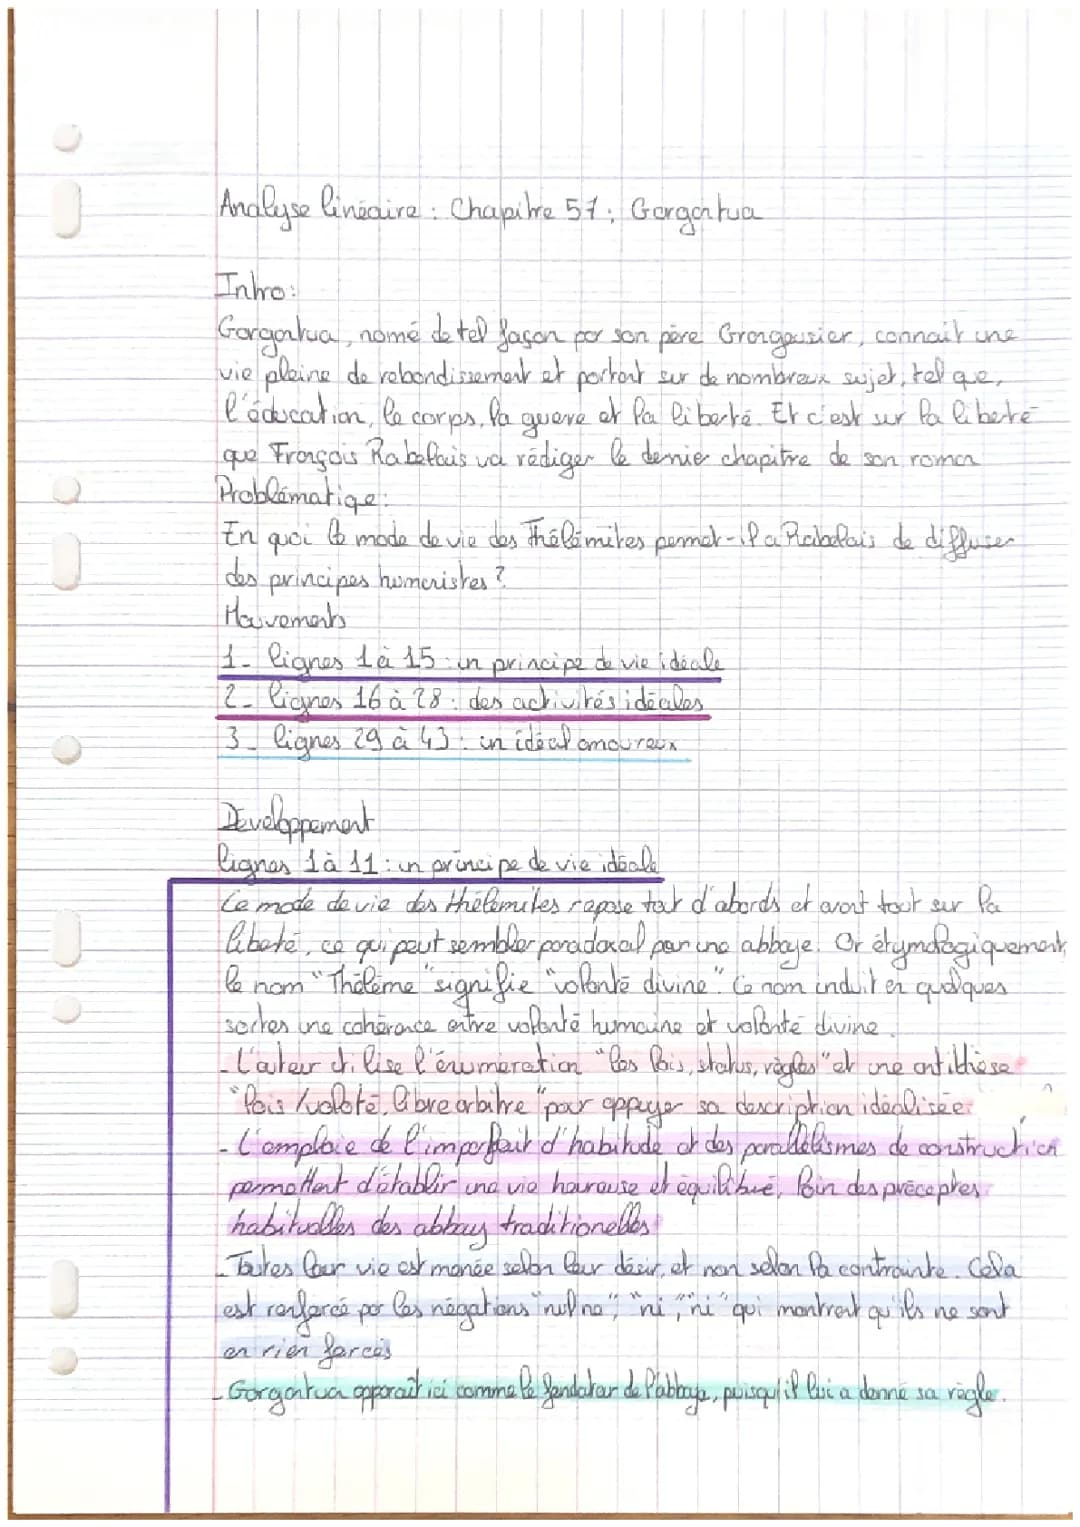 Analyse linéaire : Chapitre 57 : Gargantua
Intro :
Gargantua, nomé de tel façon par son père Grangousier, connait une
vie pleine de rebondissement et portant sur de nombreux sujet, tel que,
l'éducation, le corps, la guerre et la liberté. Et c'est sur la liberté
que François Rabelais va rédiger le dernier chapitre de son roman
Problématique :
En quoi le mode de vie des Thélémites permet-il a Rabelais de diffuser
des principes humanistes ?
Mouvements
1- lignes 1 à 15 : un principe de vie idéale
2- lignes 16 à 28 : des activités idéales
3- lignes 29 à 43 : un idéal amoureux
Développement
lignes 1 à 11 : un principe de vie idéale
Le mode de vie des thélémites repose tout d'abords et avant tout sur la
liberté, ce qui peut sembler paradoxal par une abbaye. Or étymologiquement,
le nom "Thélème" signifie "volonté divine". Ce nom induit en quelques
sortes une cohérence entre volonté humaine et volonté divine.
- L'auteur utilise l'énumération "les lois, status, règles" et une antithèse
"lois / voloté, libre arbitre" pour appuyer sa description idéalisée.
- L'emploie de l'imparfait d'habitude et des parallélismes de construction
permettent d'établir une vie heureuse et équilibré, loin des préceptes
habituelles des abbay traditionelles
- Toutes leur vie est menée selon leur désir, et non selon la contrainte. Cela
est renforcé par les négations "nul ne", "ni", "ni" qui montrent qu'ils ne sont
en rien forcés
- Gargantua apparait ici comme le fondateur de l'abbaye, puisqu'il lui a donné sa règle.